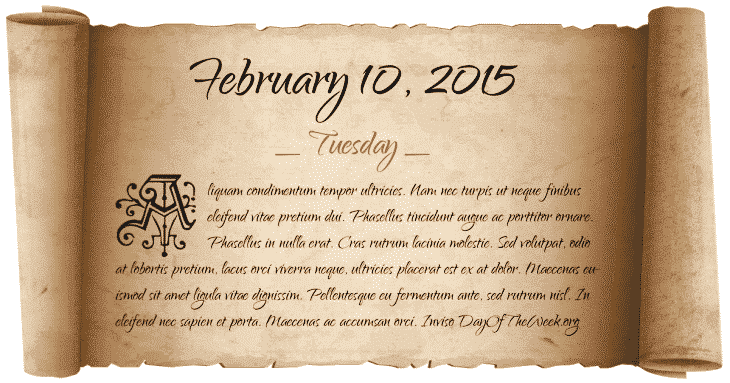 February 10, 2015
_ Tuesday _
Aliquam condimentum tempor ultricies. Nam nec turpis ut neque finibus
eleifend vitae pretium dui. Phasellus tincidunt augue ac porttitor ornare.
Phasellus in nulla erat. Cras rutrum lacinia molestie. Sed volutpat, odio
at lobortis pretium, lacus orci viverra neque, ultricies placerat est ex at dolor. Maecenas eu-
ismod sit amet ligula vitae dignissim. Pellentesque eu fermentum ante, sed rutrum nisl. In
eleifend nec sapien et porta. Maecenas ac accumsan orci. Inviso DayOfTheWeek.org